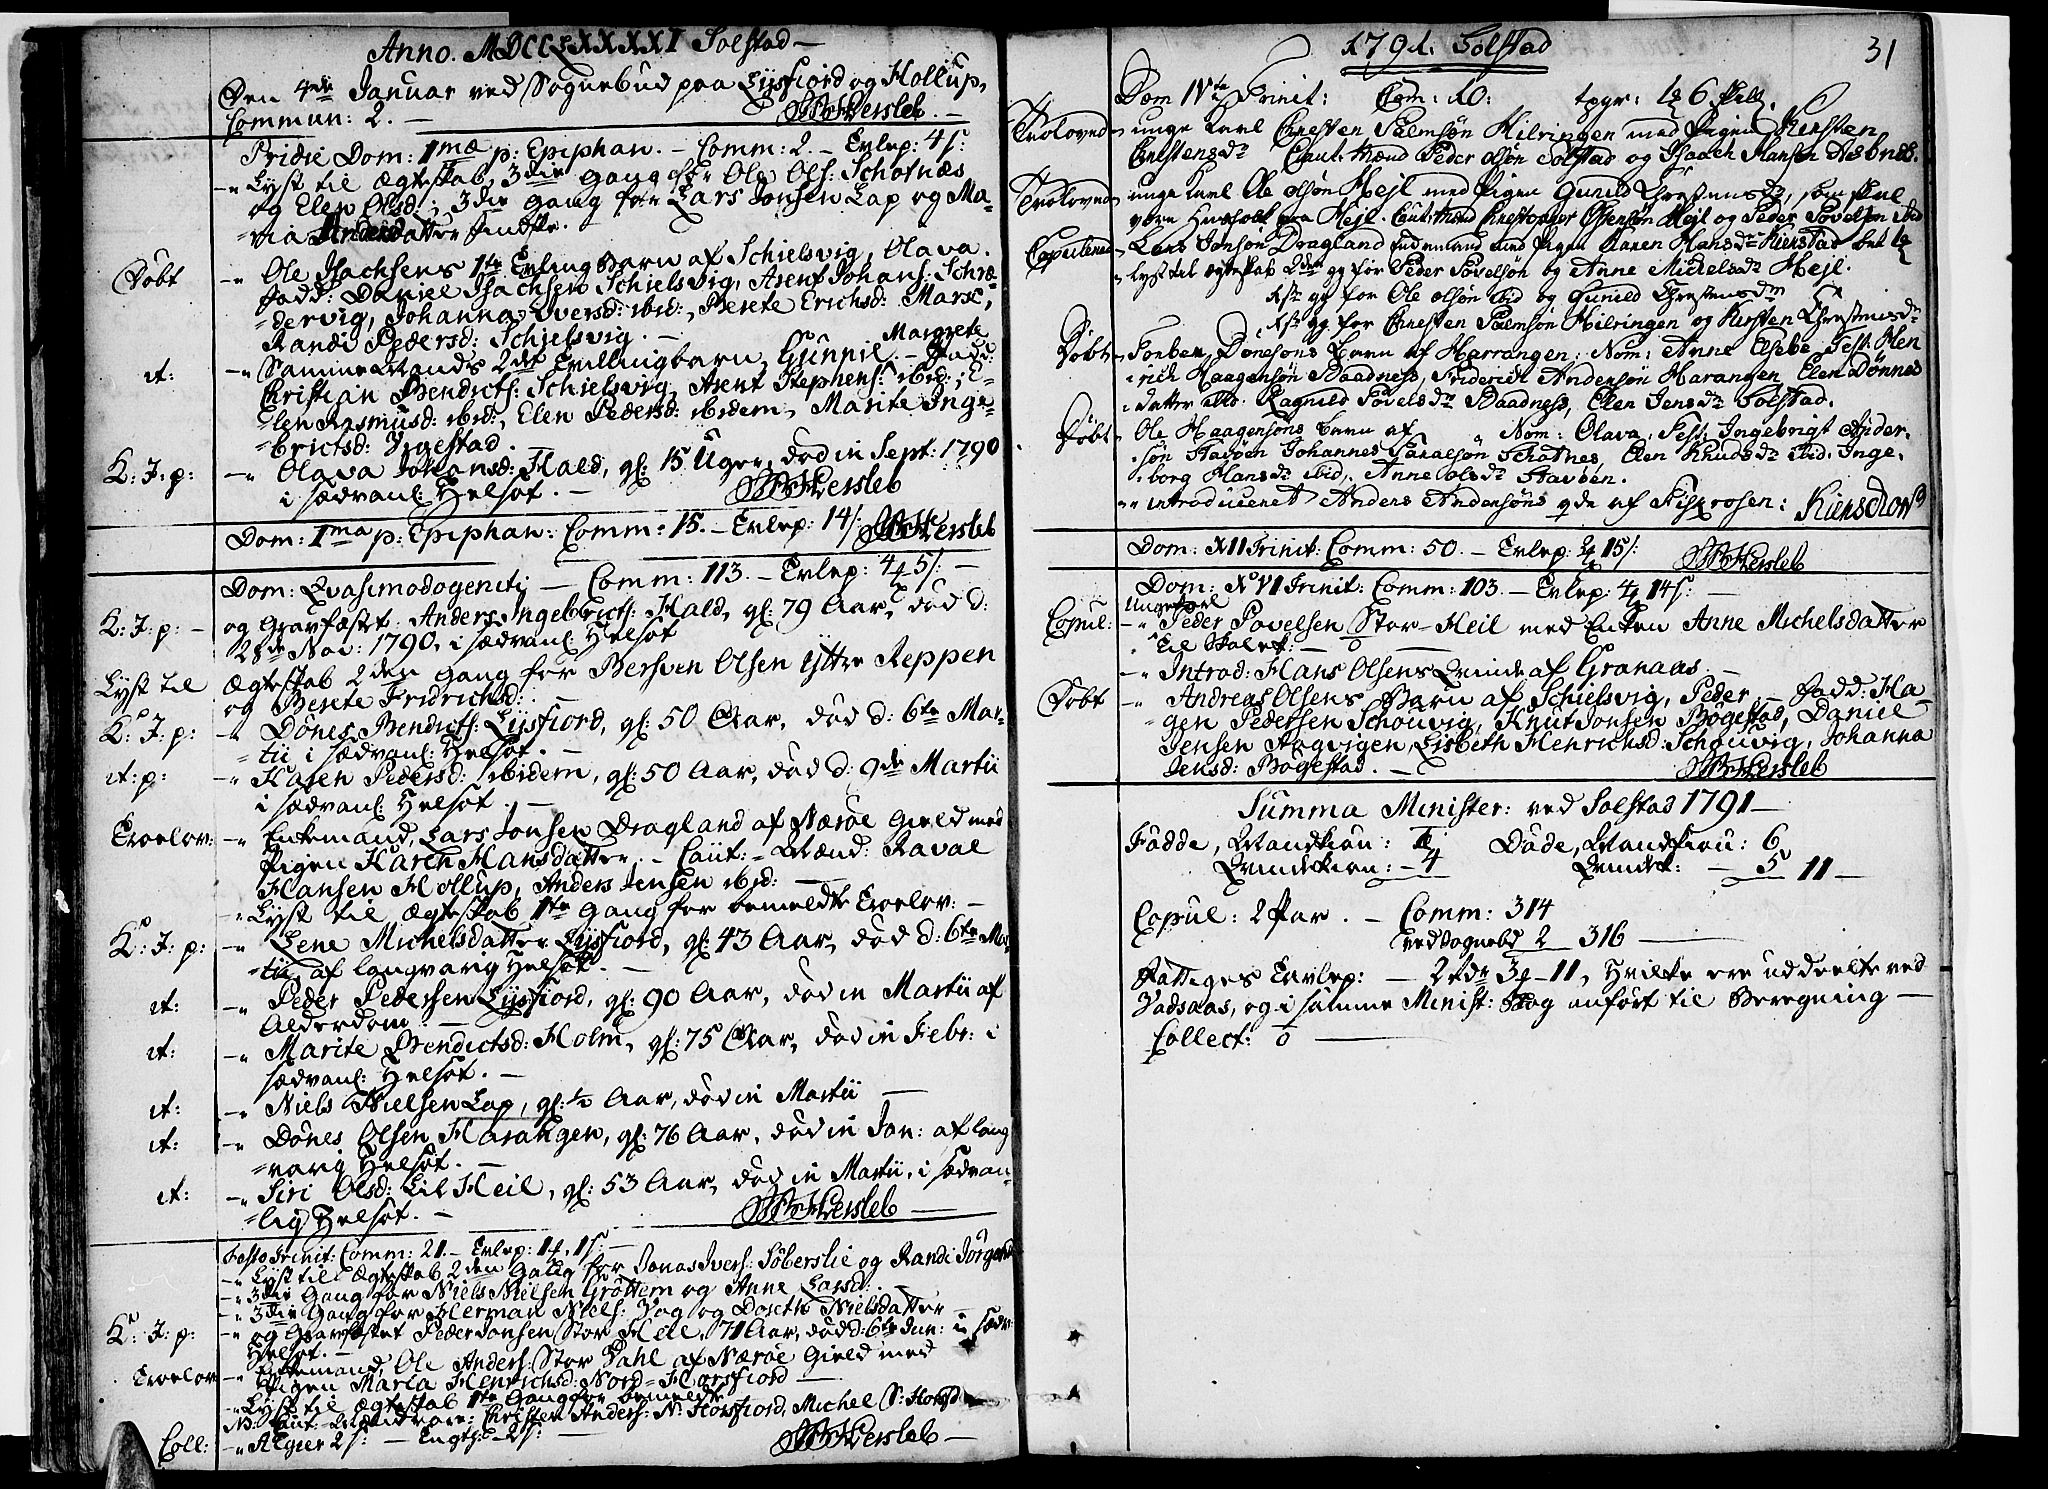 Anno. MDCCLXXXXI Solstad —
Den 4de Januar ved Sognebud paa Lysfiord og Hollup,
Commun: 2. — Hersleb. —
Pridie Dom: 1mæ p: Epiphan. — Comm: 2. — Erlep: 4 s:
-„ Lyst til Ægteskab, 3die Gang Ole Ols: Schotnæs
og Elen Olsd:; 3die Gang for Lars Jonsen Lap og Ma-
=ria
Døbt -„ Ole Isachsens 1te Barn af Schielsvig, Olava.
Fadd: Daniel Isachsen Schielsvig, Arent Johans: Schræ-
=dervig, Johanna Iversd: ibid:, Berete Erichsd: Marse,
Randi Pedersd: Schielsvig. —
it: -„ Samme Mands 2det Tvillingbarn, Gunnil Margrete. — Fadd:
Christian Bendicts: Schielsvig, Arent Stephens: ibid:, E-
=len Rasmusd: ibid:, Elen Pedersd: ibidem, Marite Inge-
=brictsd: Jigestad.
K: J: p: -„ Olava Johansd: Hald, gl: 15 Uger, død in Sept: 1790
i sædvanl: Helsot. — Hersleb
Dom: 1ma p: Epiphan: Comm: 15. — Erlep: 14 s: Hersleb
Dom: Qvasimodogeniti — Comm: 113. — Erlep: 4 5 s: —
K: J: p: — og Gravfæstet: Anders Ingebricts: Hald, gl: 79 Aar, død d:
28de Nov: 1790, i sædvanl: Helsot
Lyst til Ægteskab 2den Gang for Bersven Olsen Yttre Reppen
og Berete Fridrichsd: —
K: J: p: -„ Dønes Bendicts: Lysfiord, gl: 50 Aar, død d: 6te Mar-
=tii i sædvanl: Helsot. —
it: p: -„ Karen Pedersd: ibidem, gl: 50 Aar, død d: 9de Martii
i sædvanl: Helsot. —
Troelov: -„ Enkemand, Lars Jonsen Dragland af Nærøe Gield med
Pigen Karen Hansdatter. — Caut: — Mænd: Raval
Hansen Hollup, Anders Jensen ibid: —
-„ Lyst til Ægteskab 1te Gang for bemeldte Troelov: —
K: J: p: -„ Lene Michelsdatter Lysfiord, gl: 43 Aar, død d: 6te Mar
=tii af langvarig Helsot. —
it: -„ Peder Pedersen Lysfiord, gl: 90 Aar, død in Martii af
Alderdom. —
it: -„ Marite Bendictsd: Holm, gl: 75 Aar, død in Febr: i
sædvanl: Helsot. —
it: -„ Niels Nielsen Lap, gl: ½ Aar, død in Martii —
it: -„ Dønes Olsen Harangen, gl: 76 Aar, død in Jan: af lang
=varig Helsot. —
it: -„ Siri Olsd: Lil Heil, gl: 53 Aar, død in Martii, i sædvan-
=lig Helsot. — Hersleb —
Festo Trinit: Comm: 21. — Erlep: 1 1 s: —
-„ Lyst til Ægteskab 2den Gang for Jonas Ivers: Søberslie og Randi Jørgensd
-„ 3die Gang for Niels Nielsen Grøttem og Anne Larsd: —
-„ 3die Gang for Herman Niels: Vog og Doseth Nielsdatter —
K: J: p: -„ og Gravfæstet Peder Jonsen Stor Heil, 71 Aar, død d: 6te Jan: i sædv:
Helsot. —
Troelov -„ Enkemand, Ole Anders: Stor Dahl af Nærøe Gield med
Pigen Maria Henrichsd: Nord-Horsfiord —
-„ Lyst til Ægteskab 1te Gang for bemeldte
NB: Caut: Mænd vare: Christen Anders: N: Horsfiord, Michel S: Horsfd
Coll: -„ Algier 2 s: — 2 s: — Hersleb —
1791. Solstad
31
Dom IVte Trinit: Com: 10: tpgr: 6 skill.
Trolovede unge Karl Christen Salmsøn Hilringen med Pigen Kirsten
Christensdr Caut. Mænd Peder Olsøn Solstad og Isaach Hansen
Trolovede unge Karl Ole Olsøn Hejl med Pigen Gunild Christensdr, som skal
være Huusholt paa Hejl. Caut. Mænd Christopher Hejl og Peder Povelsen ibid
Copulerede Lars Jonsøn Dragland enkemand med Pigen Karen Hansdr Kierstad bet
Lyst til Ægteskab 2den gg for Peder Povelsøn og Anne Michelsdr Hejl.
1ste gg for Ole Olsøn ibid og Gunild Christensdr
1ste gg for Christen Salmsøn Hilringen og Kirsten Christensdr
Døbt Dønesøns barn af Harrangen: Nom: Anne Elsebe, Test: Hen
rich Haagensøn Baadness, Friderich Andersøn Harangen, Elen Dønnes
datter ibid. Ragnild Povelsdr Baadness, Elen Jensdr Solstad.
Døbt Ole Haagensøns barn af „ Nom: Olava, Test: Ingebrigt Ander-
søn Stavøen Johannes Schotnes, Elen Knudsdr ibid. Inge-
borg Hansdr ibid, Anne Olsdr Stavøen.
„ introduceret Anders Andersøns qde af Fiskrosen: Kierschow
Dom: XII Trinit: Comm: 50. — Erlep: 2 15 s: Hersleb
Dom: XVI Trinit: Comm: 103. — Erlep: 4 14 s: —
Copul: -„ Ungekarl Peder Povelsen Stor-Heil med Enken Anne Michelsdatter
— o —
-„ Introd: Hans Olsens Qvinde af Granaas. —
Døbt -„ Andreas Olsens Barn af Schielsvig, Peder. — Fadd: Ha-
=gen Pedersen Schouvig, Knut Jonsen Bøgestad, Daniel
Jensen Aagvigen, Lisbeth Henrichsd: Schouvig, Johanna
Jensd: Bøgestad. — Hersleb
Summa Minister: ved Solstad 1791 —
Fødde, Mandkiøn: Døde, Mandkiøn: 6
Qvindekiøn: — 4 Qvindek: — 5 11 —
Copul: 2 Par. — Comm: 314
ved Sognebd 2 316 —
Fattiges Tavlep: — 2 rdr 3 — 11, Hvilke ere uddeelte ved
Vadsaas, og i samme Minist: Bog anført til Beregning —
Collect: o —